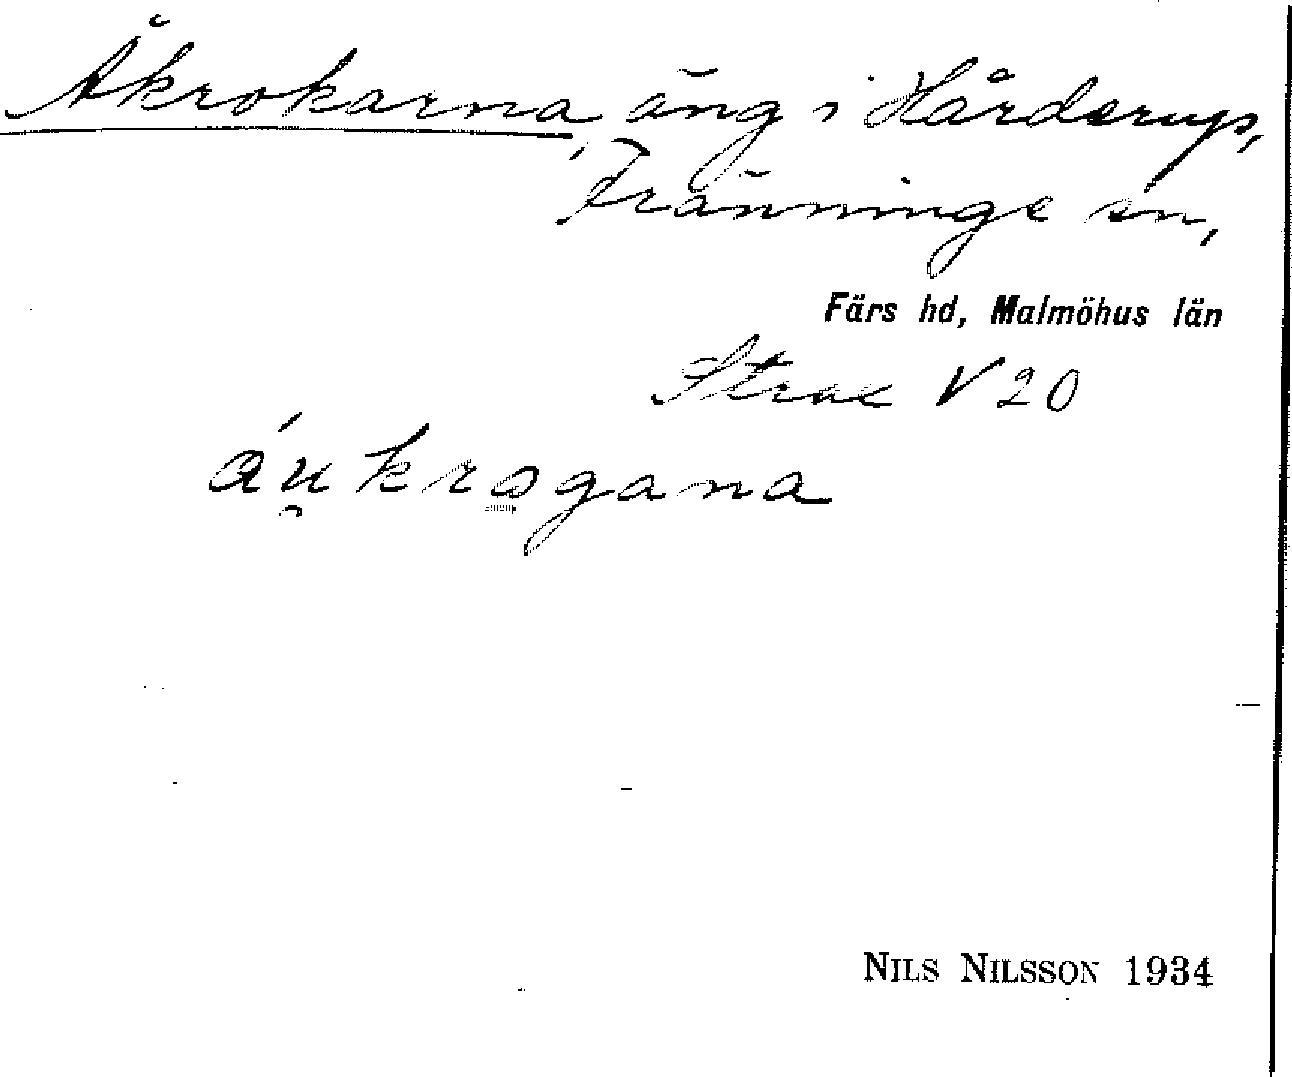 Åkrokarna, äng i Hårderup,
Fränninge sn,
Färs hd, Malmöhus län
V 20
áu̯krogana
NILS NILSSON 1934